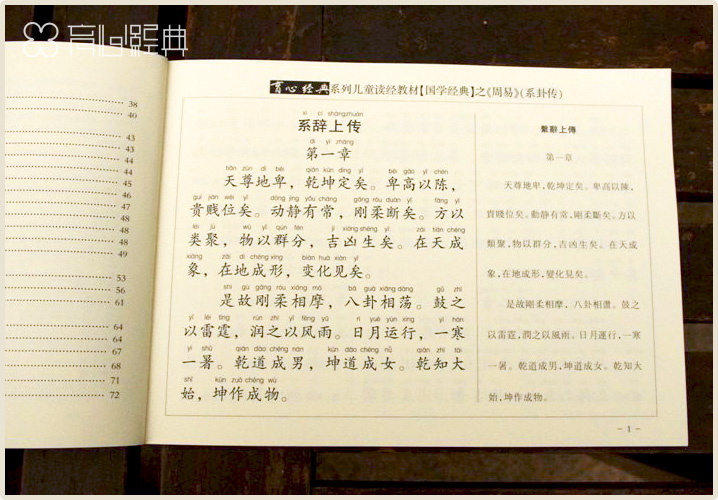 育心经典
38
40
43
43
44
44
45
46
47
48
48
49
53
56
61
64
64
67
68
71
72
育心经典系列儿童读经教材【国学经典】之《周易》(系卦传)
xì cí shàngzhuàn
系辞上传
dì yī zhāng
第一章
tiān zūn dì bēi qián kūn dìng yǐ bēi gāo yǐ chén
天尊地卑，乾坤定矣。卑高以陈，
guì jiàn wèi yǐ dòng jìng yǒu cháng gāng róu duàn yǐ fāng yǐ
贵贱位矣。动静有常，刚柔断矣。方以
lèi jù wù yǐ qún fēn jí xiōng shēng yǐ zài tiān chéng
类聚，物以群分，吉凶生矣。在天成
xiàng zài dì chéng xíng biàn huà xiàn yǐ
象，在地成形，变化见矣。
shì gù gāng róu xiāng mó bā guà xiāng dàng gǔ zhī
是故刚柔相摩，八卦相荡。鼓之
yǐ léi tíng rùn zhī yǐ fēng yǔ rì yuè yùn xíng yì hán
以雷霆，润之以风雨。日月运行，一寒
yì shǔ qián dào chéng nán kūn dào chéng nǚ qián zhī tài
一暑。乾道成男，坤道成女。乾知大
shǐ kūn zuò chéng wù
始，坤作成物。
繫辭上傳
第一章
天尊地卑,乾坤定矣。卑高以陳,
貴賤位矣。動靜有常,剛柔斷矣。方以
類聚,物以群分,吉凶生矣。在天成
象,在地成形,變化見矣。
是故剛柔相摩，八卦相盪。鼓之
以雷霆,潤之以風雨。日月運行,一寒
一暑。乾道成男,坤道成女。乾知大
始,坤作成物。
- 1 -